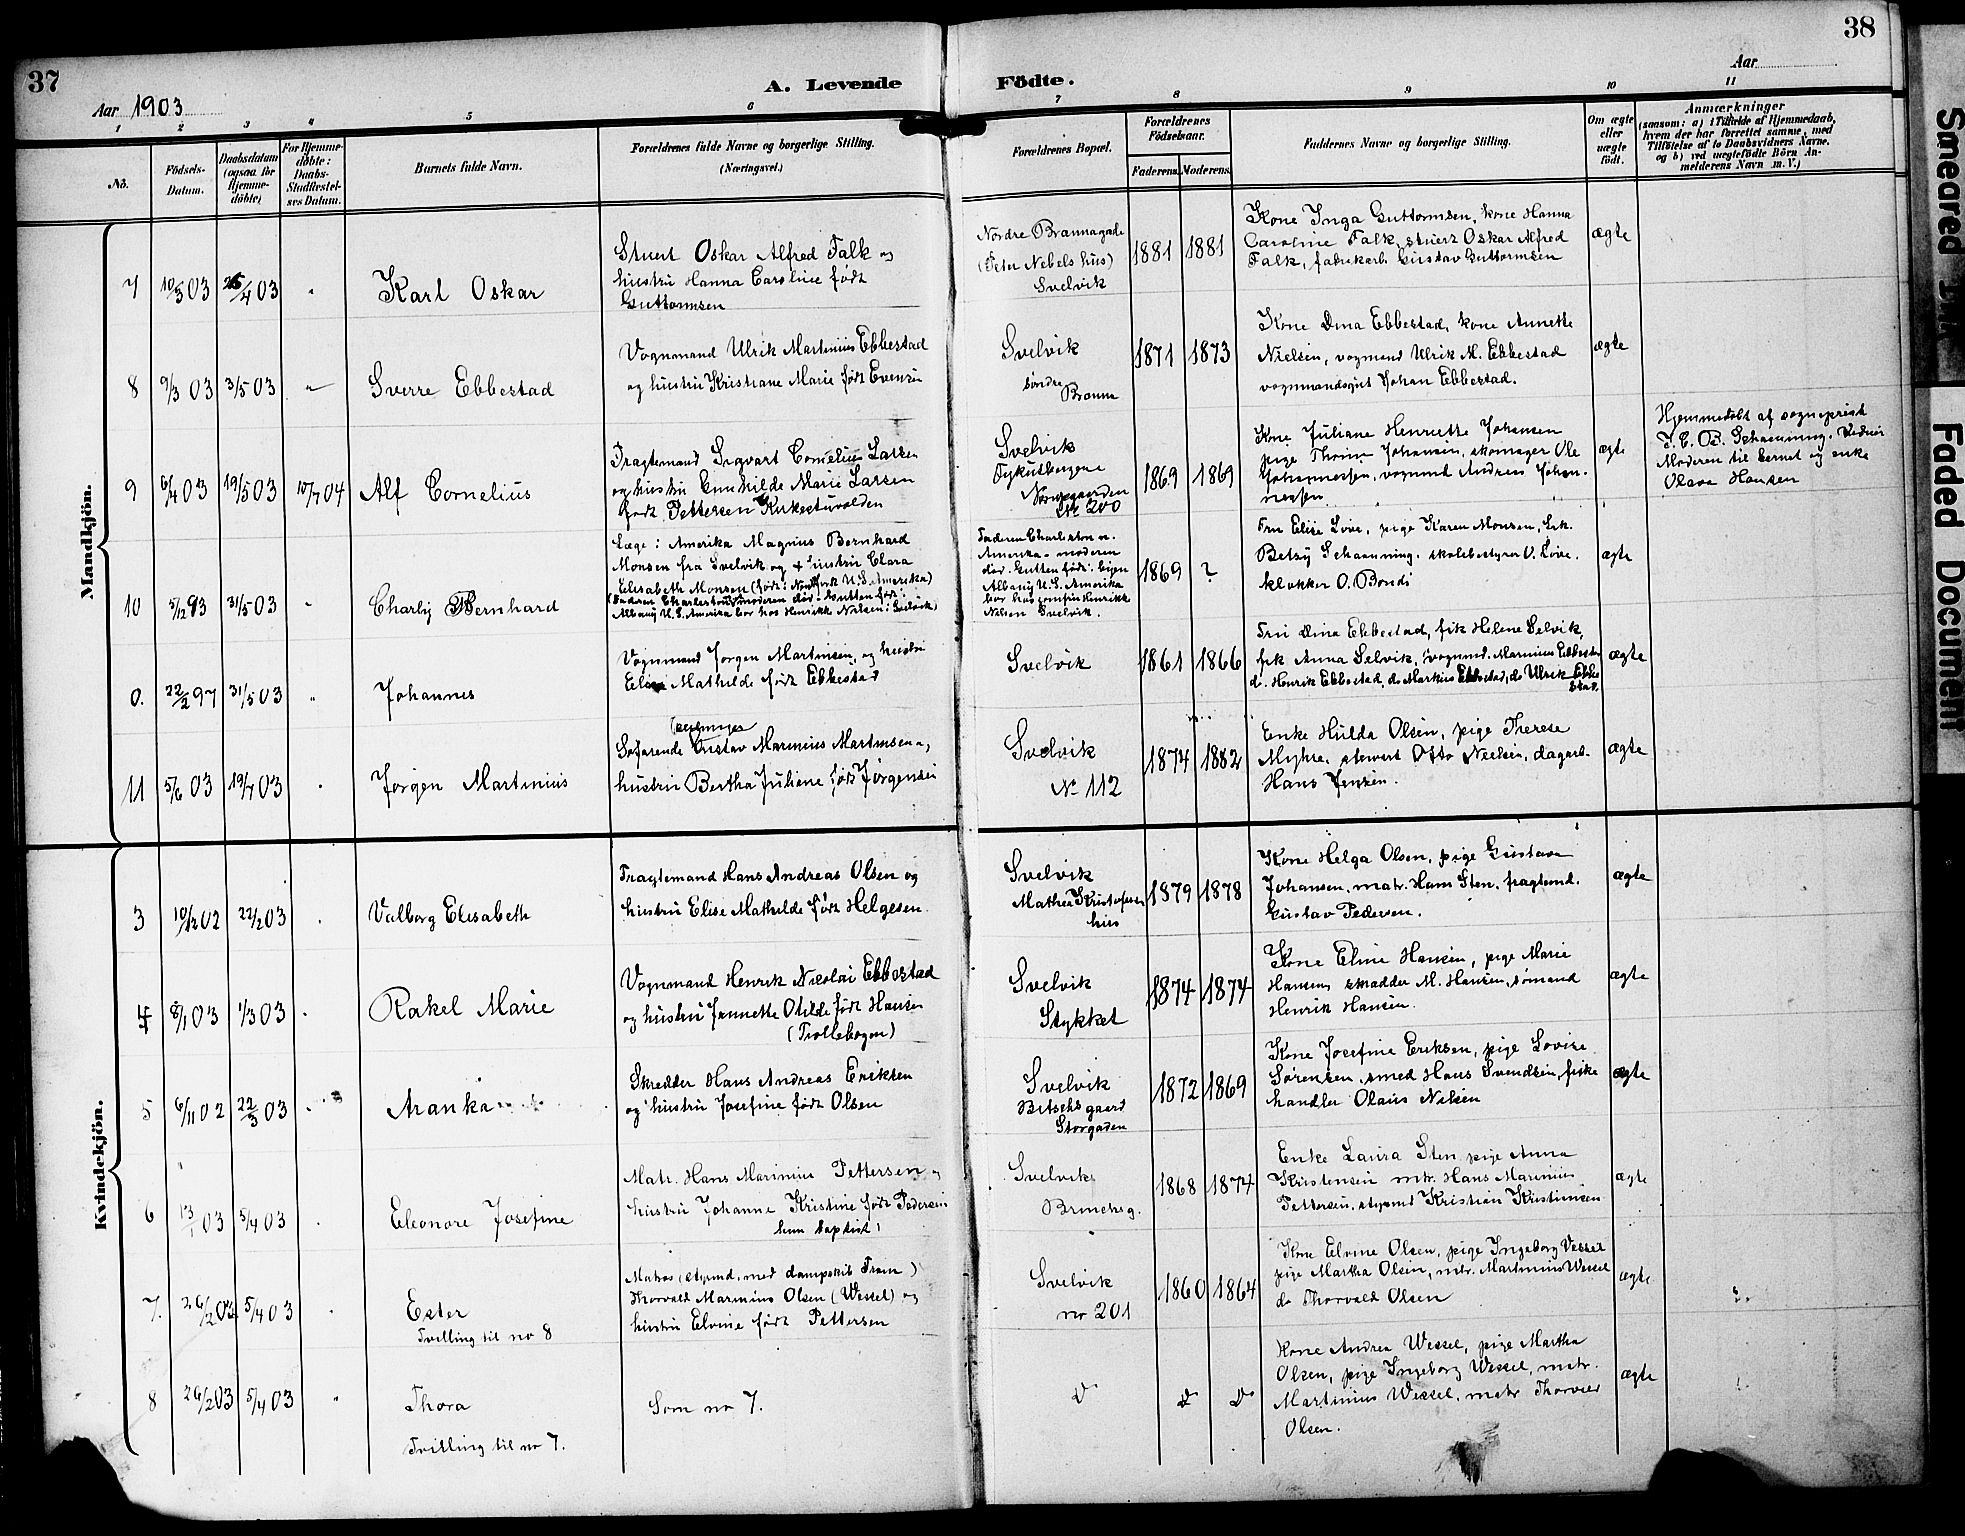 37
38
A. Levende
Fødte.
Aar 1903
Aar
1 2 3 4 5 6 7 8 9 10 11
No.
Fødsels-
Datum.
Daabsdatum
(ogsaa for
Hjemme-
døbte)
For Hjemme-
døbte:
Daabs-
Stadfæstel-
ses Datum.
Barnets fulde Navn.
Forældrenes fulde Navne og borgerlige Stilling.
(Næringsvei.)
Forældrenes Bopæl.
Forældrenes
Fødselsaar.
Faderens. Moderens.
Faddernes Navne og borgerlige Stilling.
Om ægte
eller
uægte
født.
Anmærkninger
(saasom: a) i Tilfælde af Hjemmedaab,
hvem der har forrettet samme, med
Tilføielse af to Daabsvidners Navne.
og b) ved uægtefødte Børn An-
melderens Navn m. V.)
Mandkjön.
7
10/3 03
26/4 03
Karl Oskar
Stuert Oskar Alfred Falk og
hustru Hanna Caroline født
Guttormsen
Nordre Brannagade
(Peter Nebels hus)
Svelvik
1881
1881
Kone Inga Guttormsen, kone Hanna
Caroline Falk, stuert Oskar Alfred
Falk, fabrikarb. Gustav Guttormsen
ægte
8
9/3 03
3/5 03
Sverre Ebbestad
Vognmand Ulrik Martinius Ebbestad
og hustru Kristiane Marie født Evensen
Svelvik
søndre
Branna
1871
1873
Kone Dina Ebbestad, kone Annette
Nielsen, vogmand Ulrik M. Ebbestad
vognmandsgut Johan Ebbestad.
ægte
9
6/4 03
19/5 03
10/7 04
Alf Cornelius
Fragtemand Sigvart Cornelius Larsen
og hustru Gunhilde Marie Larsen
født Pettersen Kirkestuvolden
Svelvik
No 200
1869
1869
Kone Juliane Henriette Johansen
pige Thorine Johansen, skomager Ole
Johannessen, vogmd Andreas Johan-
nessen
ægte
Hjemmedøbt af sogneprest
J. C. B. Schanning. Vidner
Moderen til barnet og enke
Olava Hansen
10
5/12 93
31/5 03
Charly Bernhard
Læge i Amerika Magnus Bernhard
Monsen fra Svelvik og + hustru Clara
Elisabeth Monsen (født i New York U.S. Amerika)
(Faderen Charleston, moderen død. Gutten født i
Albany U.S. Amerika bor hos Henrikk Nielsen i Svelvik)
Faderen Charleston n.
Amerika - moderen
død. Gutten født i byen
Albany U.S. Amerika
bor hos Henrikk
Nielsen Svelvik.
1869
?
Fru Elise Love, pige Karen Monsen, frk.
Betsy Schanning. skolebestyrer O. Love.
klokker O. Bondi
ægte
0.
22/2 97
31/5 03
Johannes
Vognmand Jørgen Martinsen, og hustru
Elise Mathilde født Ebbestad
Svelvik
1861
1866
Fru Dina Ebbestad, frk Helene Selvik,
frk Anna Selvik, vogmd. Marinius Ebbesta
d. Henrik Ebbestad, do Markus Ebbestad, do Ulrik Ebbe
stad.
ægte
11
5/6 03
19/7 03
Jørgen Martinius
Søfarende Gustav Marinius Martinsen o,
hustru Bertha Juliane født Jørgensen
Svelvik
No 112
1874
1882
Enke Hulda Olsen, pige Therese
Myhre, stewart Otto Nielsen, dagarb.
Hans Jensen.
ægte
Kvindekjön.
3
10/12 02
22/2 03
Valborg Elisabeth
Fragtemand Hans Andreas Olsen og
hustru Elise Mathilde født Helgesen.
Svelvik
Mathea Kristofersens
hus
1879
1878
Kone Helga Olsen, pige Gustava
Johansen, matr. Hans Sten, fragtemd.
Gustav Pedersen.
ægte
4
8/1 03
1/3 03
Rakel Marie
Vognmand Henrik Nicolai Ebbestad
og hustru Jannette Otilde født Hansen
(Trollebogen)
Svelvik
Stykket
1874
1874
Kone Eline Hansen, pige Marie
Hansen, skradder M. Hansen, sømand
Henrik Hansen.
ægte
5
6/11 02
22/3 03
Aranka
Skredder Hans Andreas Eriksen
og hustru Josefine født Olsen
Svelvik
Bitschsgaard
Storgaden
1872
1869
Kone Josefine Eriksen, pige Lovise
Sørensen, smed Hans Svendsen, fiske
handler Olaus Nelsen
ægte
6
13/1 03
5/4 03
Eleonore Josefine
Matr. Hans Marinius Pettersen og
hustru Johanne Kristine født Pedersen
hun baptist!
Svelvik
Brinchsg.
1868
1874
Enke Laura Sten, pige Anna
Kristensen, mtr. Hans Marinius
Pettersen, styrmd Kristian Kristensen
ægte
7.
26/2 03
5/4 03
Ester
Tvilling til no 8
Matros (styrmd. med dampskib Fram)
Thorvald Marinius Olsen (Wessel) og
hustru Elvine født Pettersen
Svelvik
no 201
1860
1864
Kone Elvine Olsen, pige Ingeborg Vessel
pige Martha Olsen, mtr. Martinius Wessel
do Thorvald Olsen
ægte
8
26/2 03
5/4 03
Thora
Tvilling til no 7.
Som no 7.
Kone Andrea Wessel, pige Martha
Olsen, pige Ingeborg Wessel, matr.
Martinius Wessel, matr Thorvald
Olsen.
ægte
Smeared
Faded Document